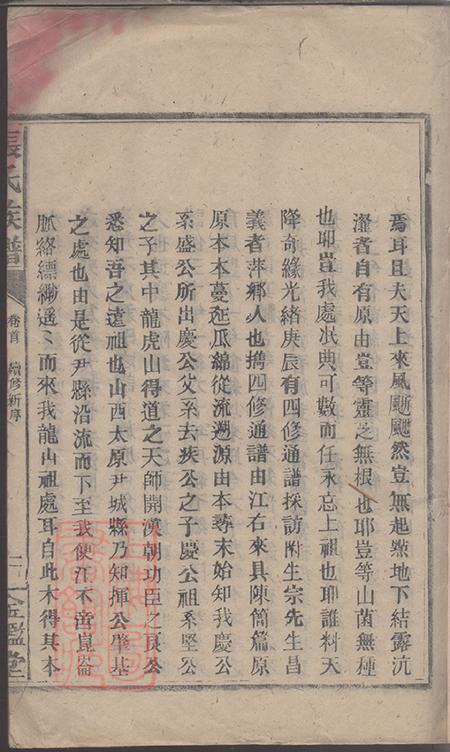 焉耳且夫天上來風颺颺然豈無起點地下結露沆
瀣者自有原由豈等靈芝無根也耶豈等山菌無種
也耶豈我處㳄典可數而任永忘上祖也耶誰料天
降奇緣光緒庚辰有四修通譜採訪附生宗先生昌
義者萍鄉人也攜四修通譜由江右來具陳簡篇原
原本本蔓延瓜綿從流遡源由本尋末始知我慶公
系盛公所出慶公父系去疾公之子慶公祖系堅公
之子其中龍虎山得道之天師開漢朝功臣之良公
悉知吾之遠祖也山西太原尹城縣乃知揮公肇基
之處也由是從尹縣沿流而下至我使江不啻崑崙
脈絡縹緲遥〻而來我龍山祖處耳自此木得其本
張氏族譜
卷首
續修新序
金鑑堂